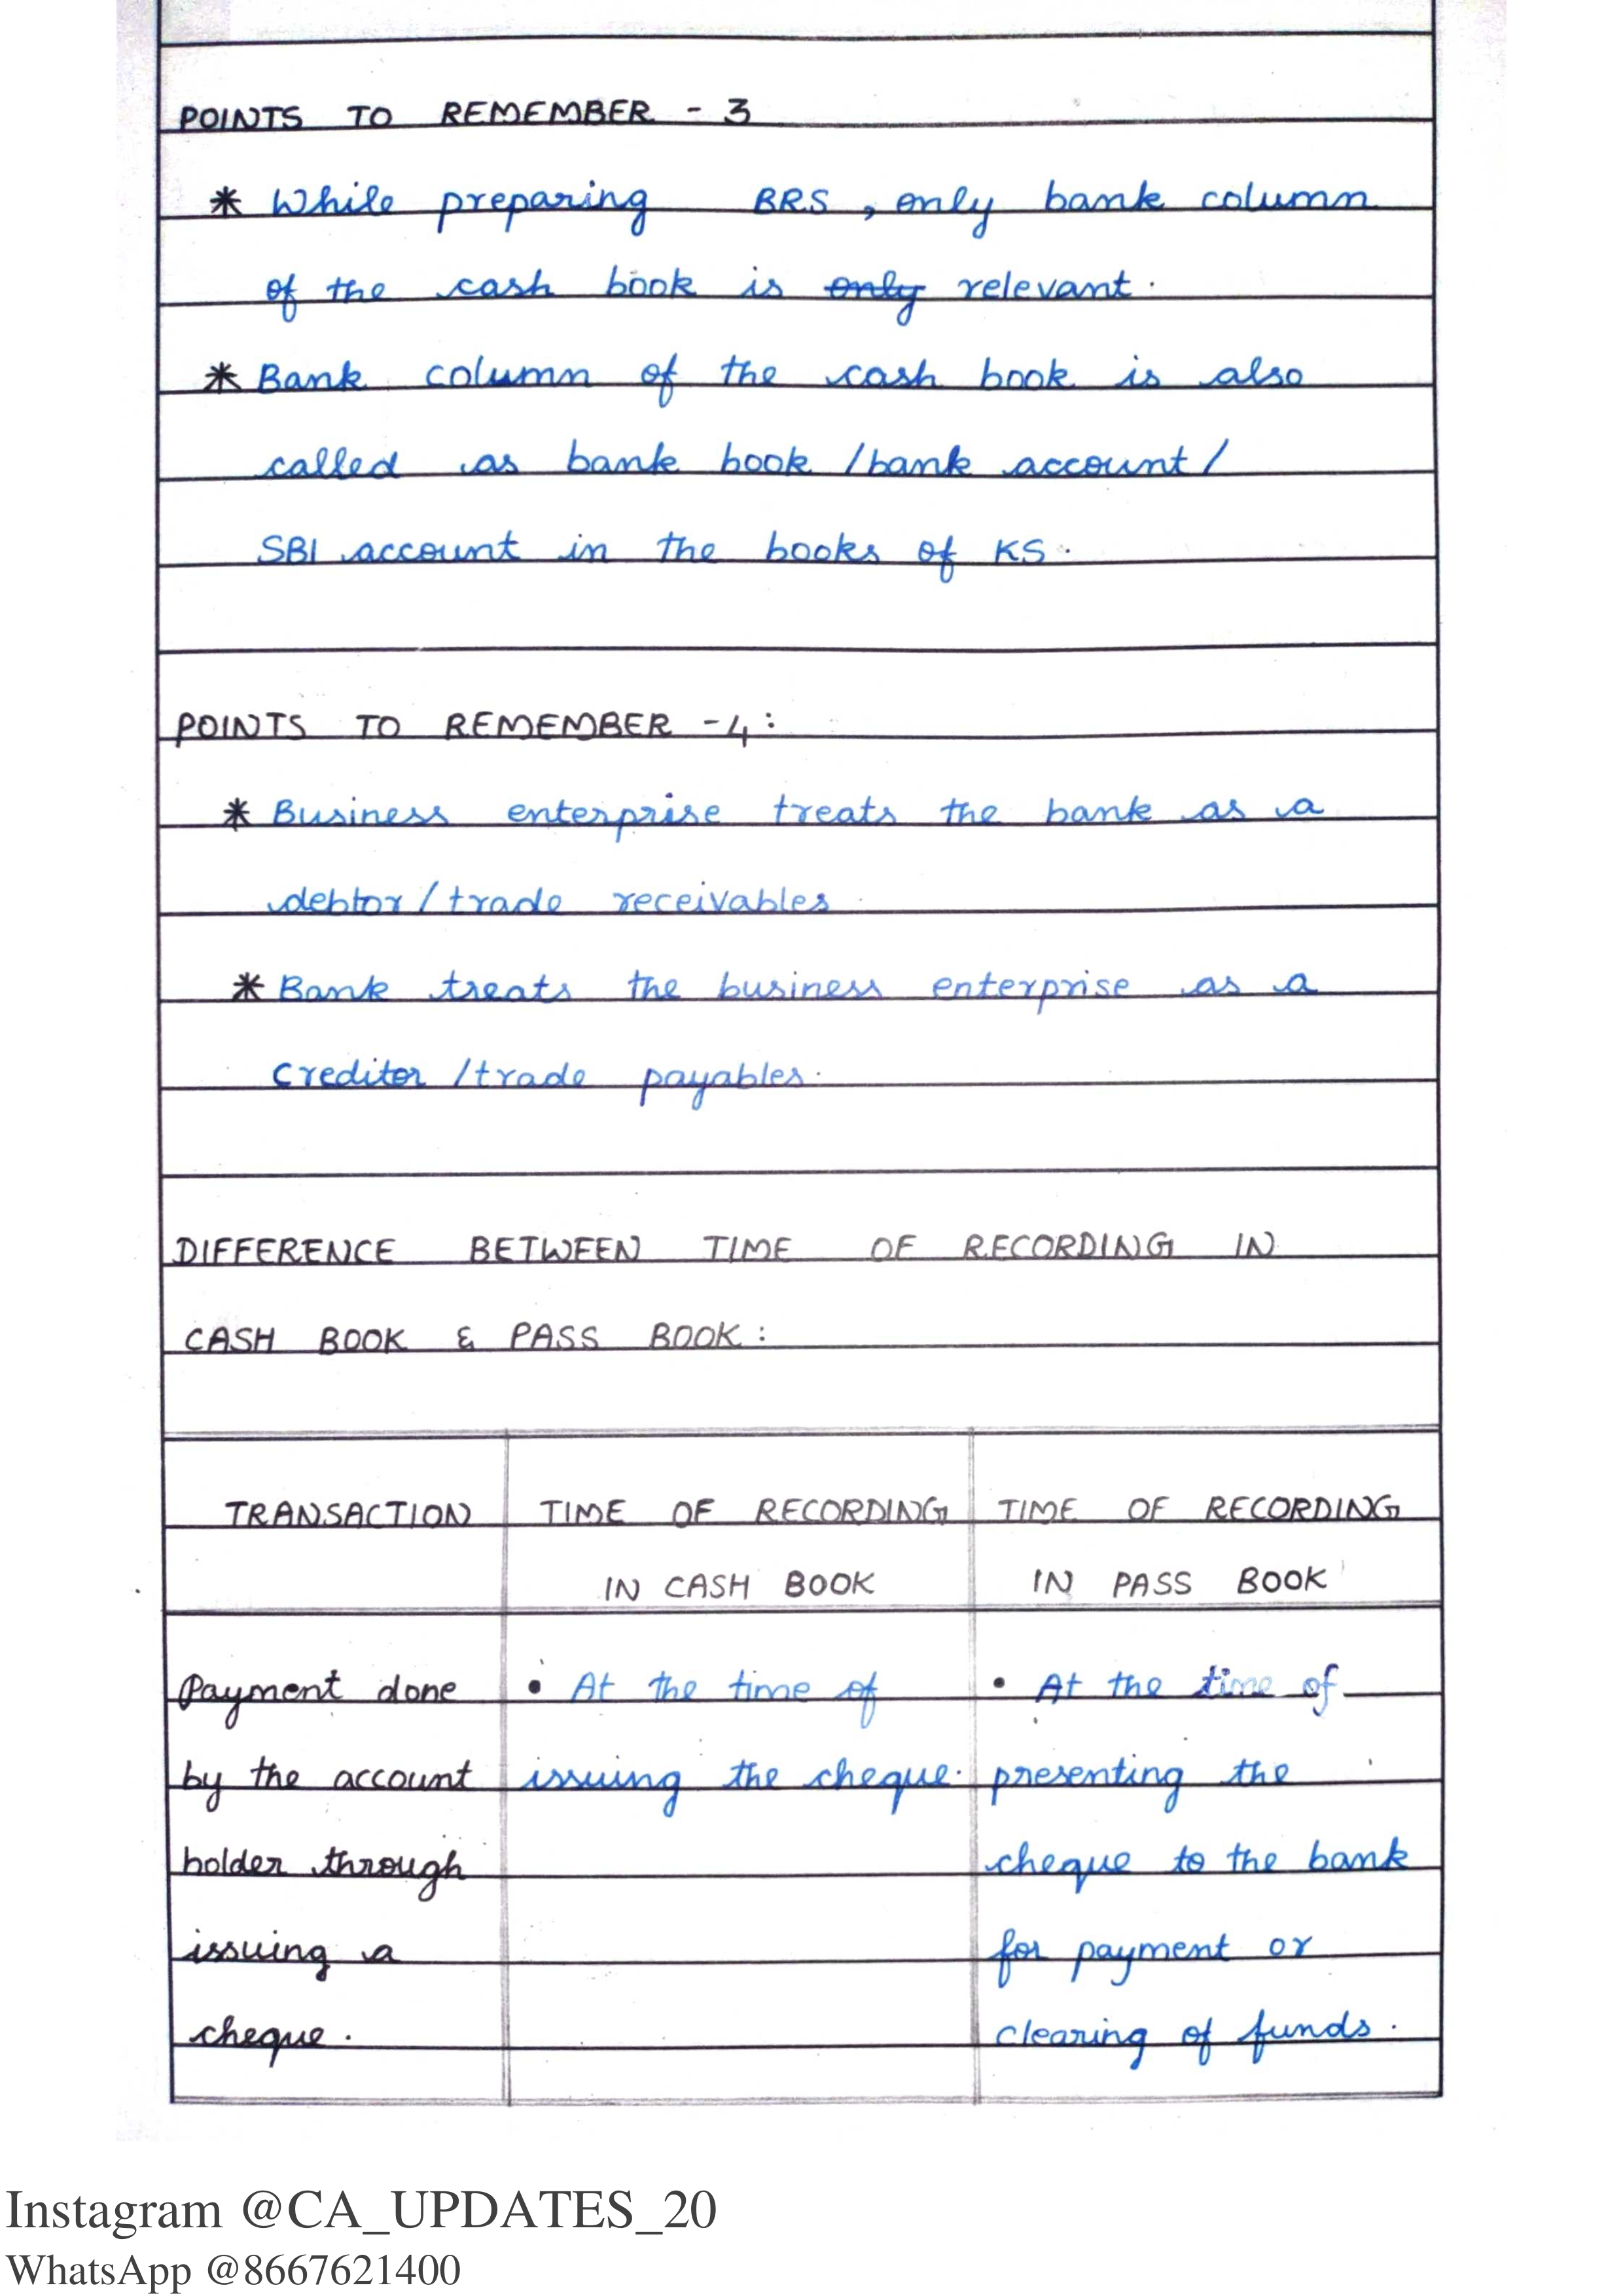 POINTS TO REMEMBER - 3
* While preparing BRS, only bank column
of the cash book is only relevant.
* Bank column of the cash book is also
called as bank book /bank account/
SBI account in the books of KS.
POINTS TO REMEMBER -4:
* Business enterprise treats the bank as a
debtor/trade receivables
* Bank treats the business enterprise as a
creditor /trade payables.
DIFFERENCE BETWEEN TIME OF RECORDING IN
CASH BOOK & PASS BOOK:
TRANSACTION
TIME OF RECORDING
IN CASH BOOK
TIME OF RECORDING
IN PASS BOOK
Payment done
by the account
holder through
issuing a
cheque.
• At the time of
issuing the cheque.
• At the time of
presenting the
cheque to the bank
for payment or
clearing of funds.
Instagram @CA_UPDATES_20
WhatsApp @8667621400